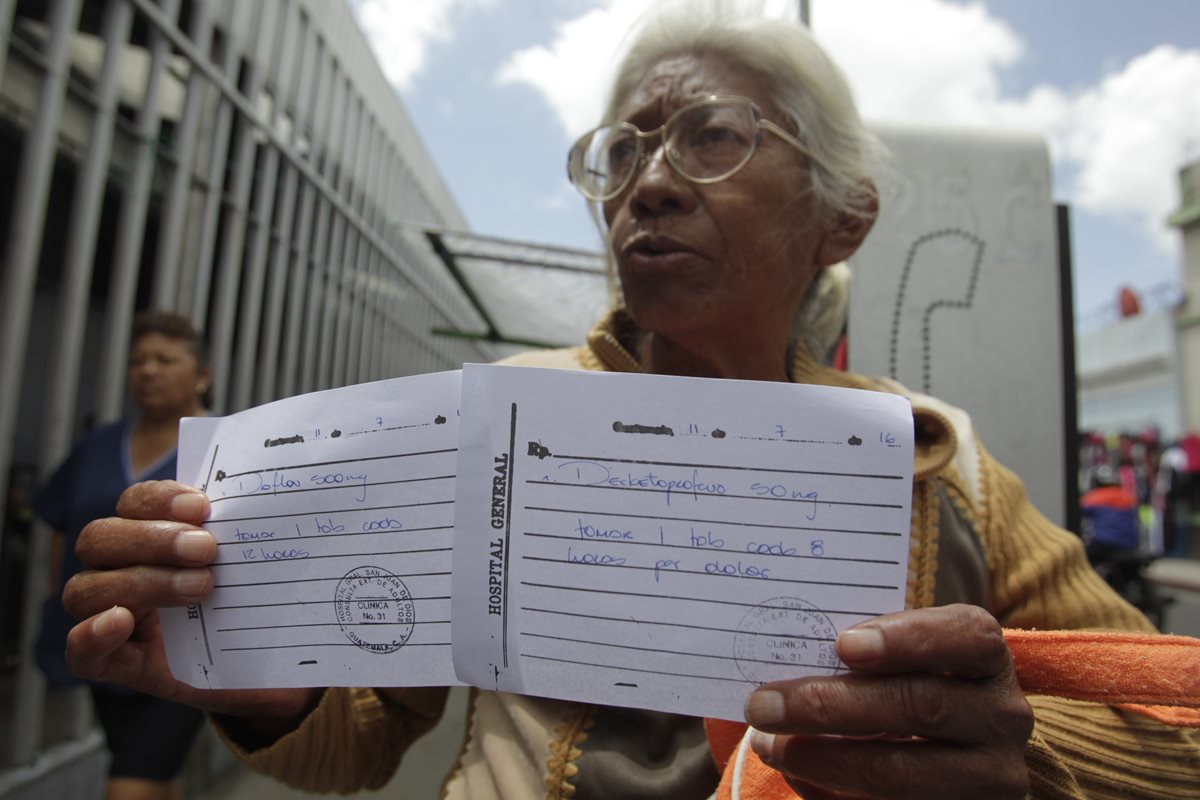 11 7
Rp.
Daflon 500mg
tomar 1 tab cada
12 horas
HOSPITAL GRAL SAN JUAN DE DIOS
CONSULTA EXT. DE ADULTOS
CLINICA
No. 31
GUATEMALA, C. A.
11 de 7 de 16
Rp.
Dexketoprofeno 50mg
tomar 1 tab cada 8
horas por dolor
HOSPITAL GENERAL
CLINICA
No. 31